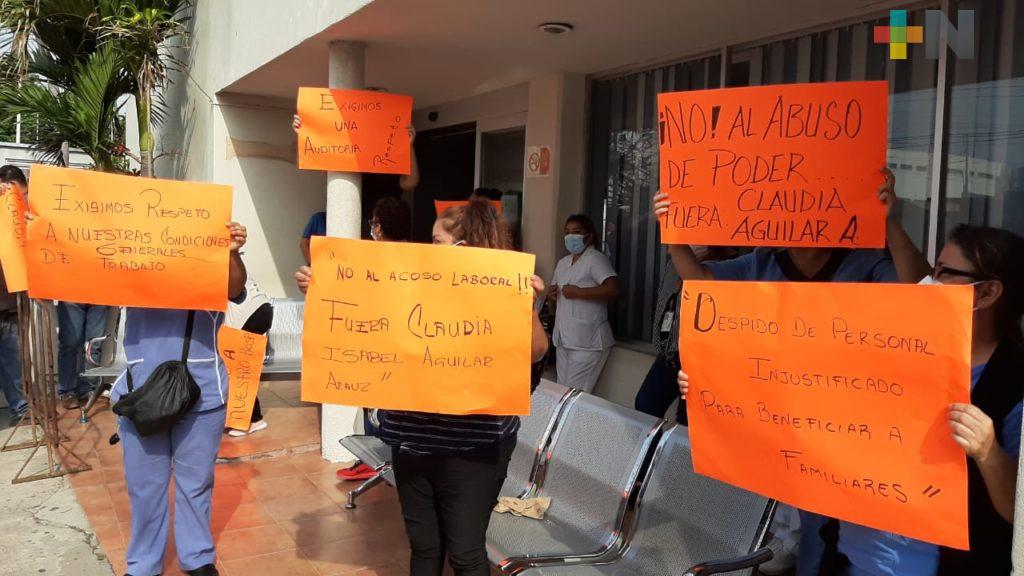 EXIGIMOS
UNA
AUDITORIA
RESPETO
¡NO! AL ABUSO
DE PODER....
FUERA CLAUDIA
AGUILAR A.
EXIGIMOS RESPETO
A NUESTRAS CONDICIONES
GENERALES
DE TRABAJO
"NO AL ACOSO LABORAL!!!
FUERA CLAUDIA
ISABEL AGUILAR
ARAUZ"
DESPIDO DE PERSONAL
INJUSTIFICADO
PARA BENEFICIAR A
FAMILIARES"
A
NUESTRO
+N